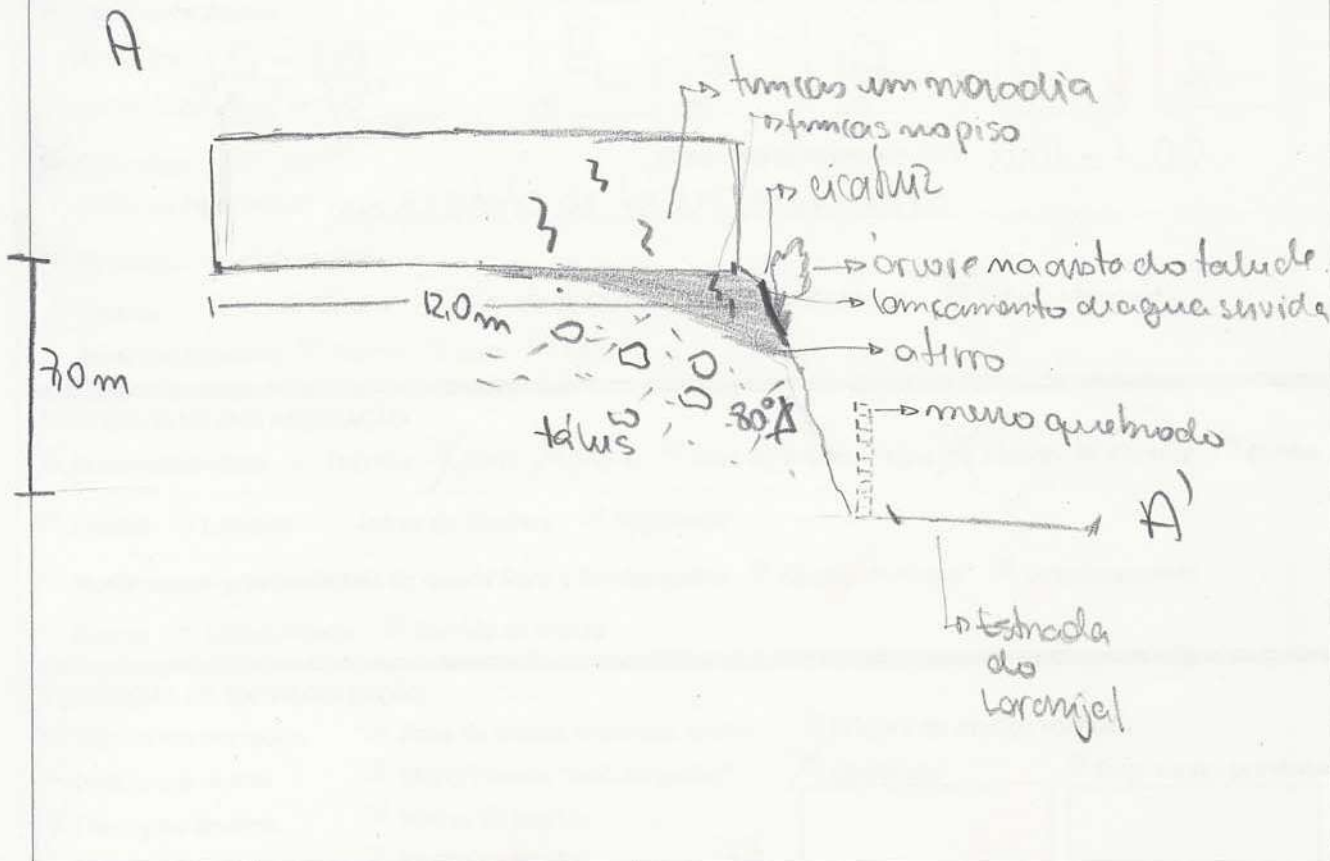 A
trincas em moradia
trincas no piso
cicatriz
árvore na crista do talude.
lançamento d'agua servida
aterro
12,0m
7,0m
tálus
80°
muro quebrado
A'
Estrada
do
Laranjal